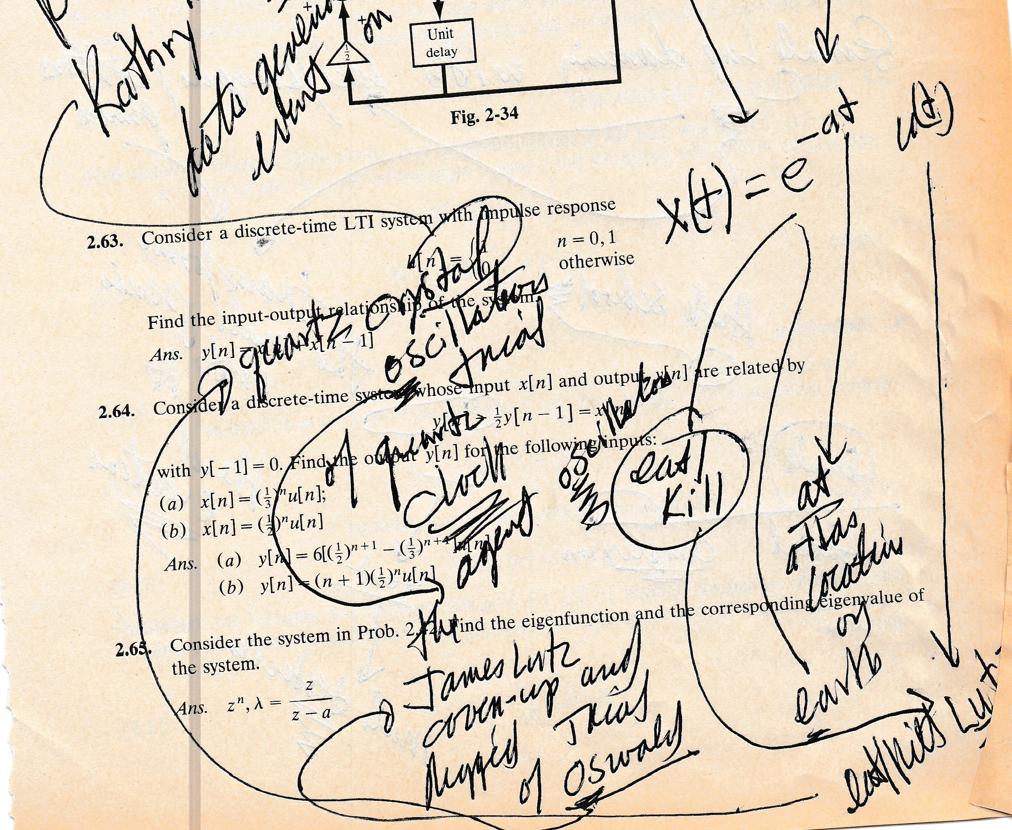 Kathry
data
event
on
1/2
Unit
delay
Fig. 2-34
x(t) = e^-at u(t)
2.63. Consider a discrete-time LTI system with impulse response
n = 0, 1
otherwise
Find the input-output relationship of the system.
Ans. y[n] = x[n − 1]
quartz crystal
oscillators
trial
2.64. Consider a discrete-time system whose input x[n] and output y[n] are related by
½y[n − 1] = x
with y[−1] = 0. Find the output y[n] for the following inputs:
(a) x[n] = (⅓)ⁿu[n];
(b) x[n] = (½)ⁿu[n]
Ans. (a) y[n] = 6[(½)ⁿ⁺¹ − (⅓)ⁿ⁺¹]u[n]
(b) y[n] = (n + 1)(½)ⁿu[n]
of quartz
clock
agent
oscillators
eat/
kill
at
atlas
location
of
earth
2.65. Consider the system in Prob. 2. Find the eigenfunction and the corresponding eigenvalue of
the system.
Ans. zⁿ, λ = z / (z − a)
the
James Lutz
cover-up and
rigged trial
of Oswald
eat/kills Lut